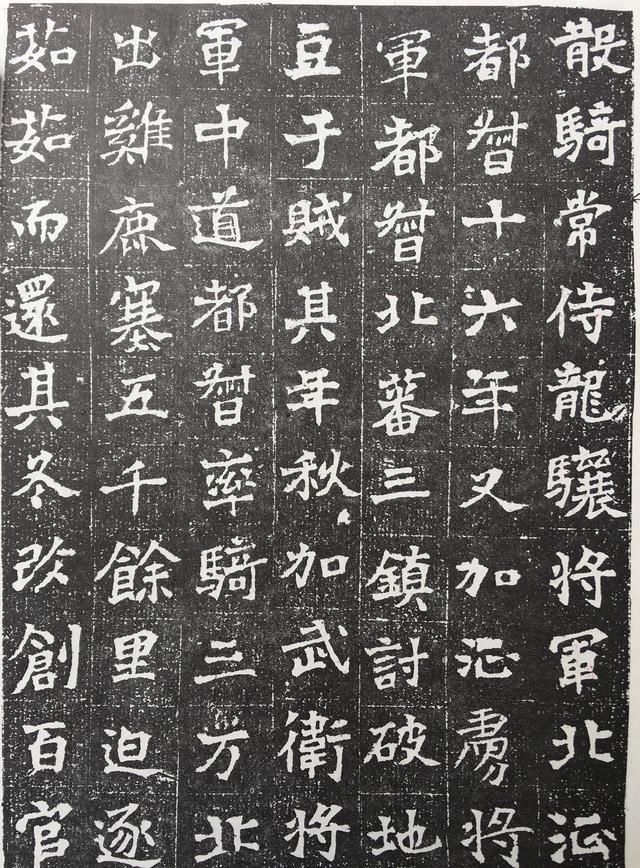 散騎常侍龍驤將軍北征
都督十六年又加征虜將
軍都督北蕃三鎮討破地
豆于賊其年秋加武衛將
軍中道都督率騎三万北
出雞鹿塞五千餘里迫逐
茹茹而還其冬改創百官